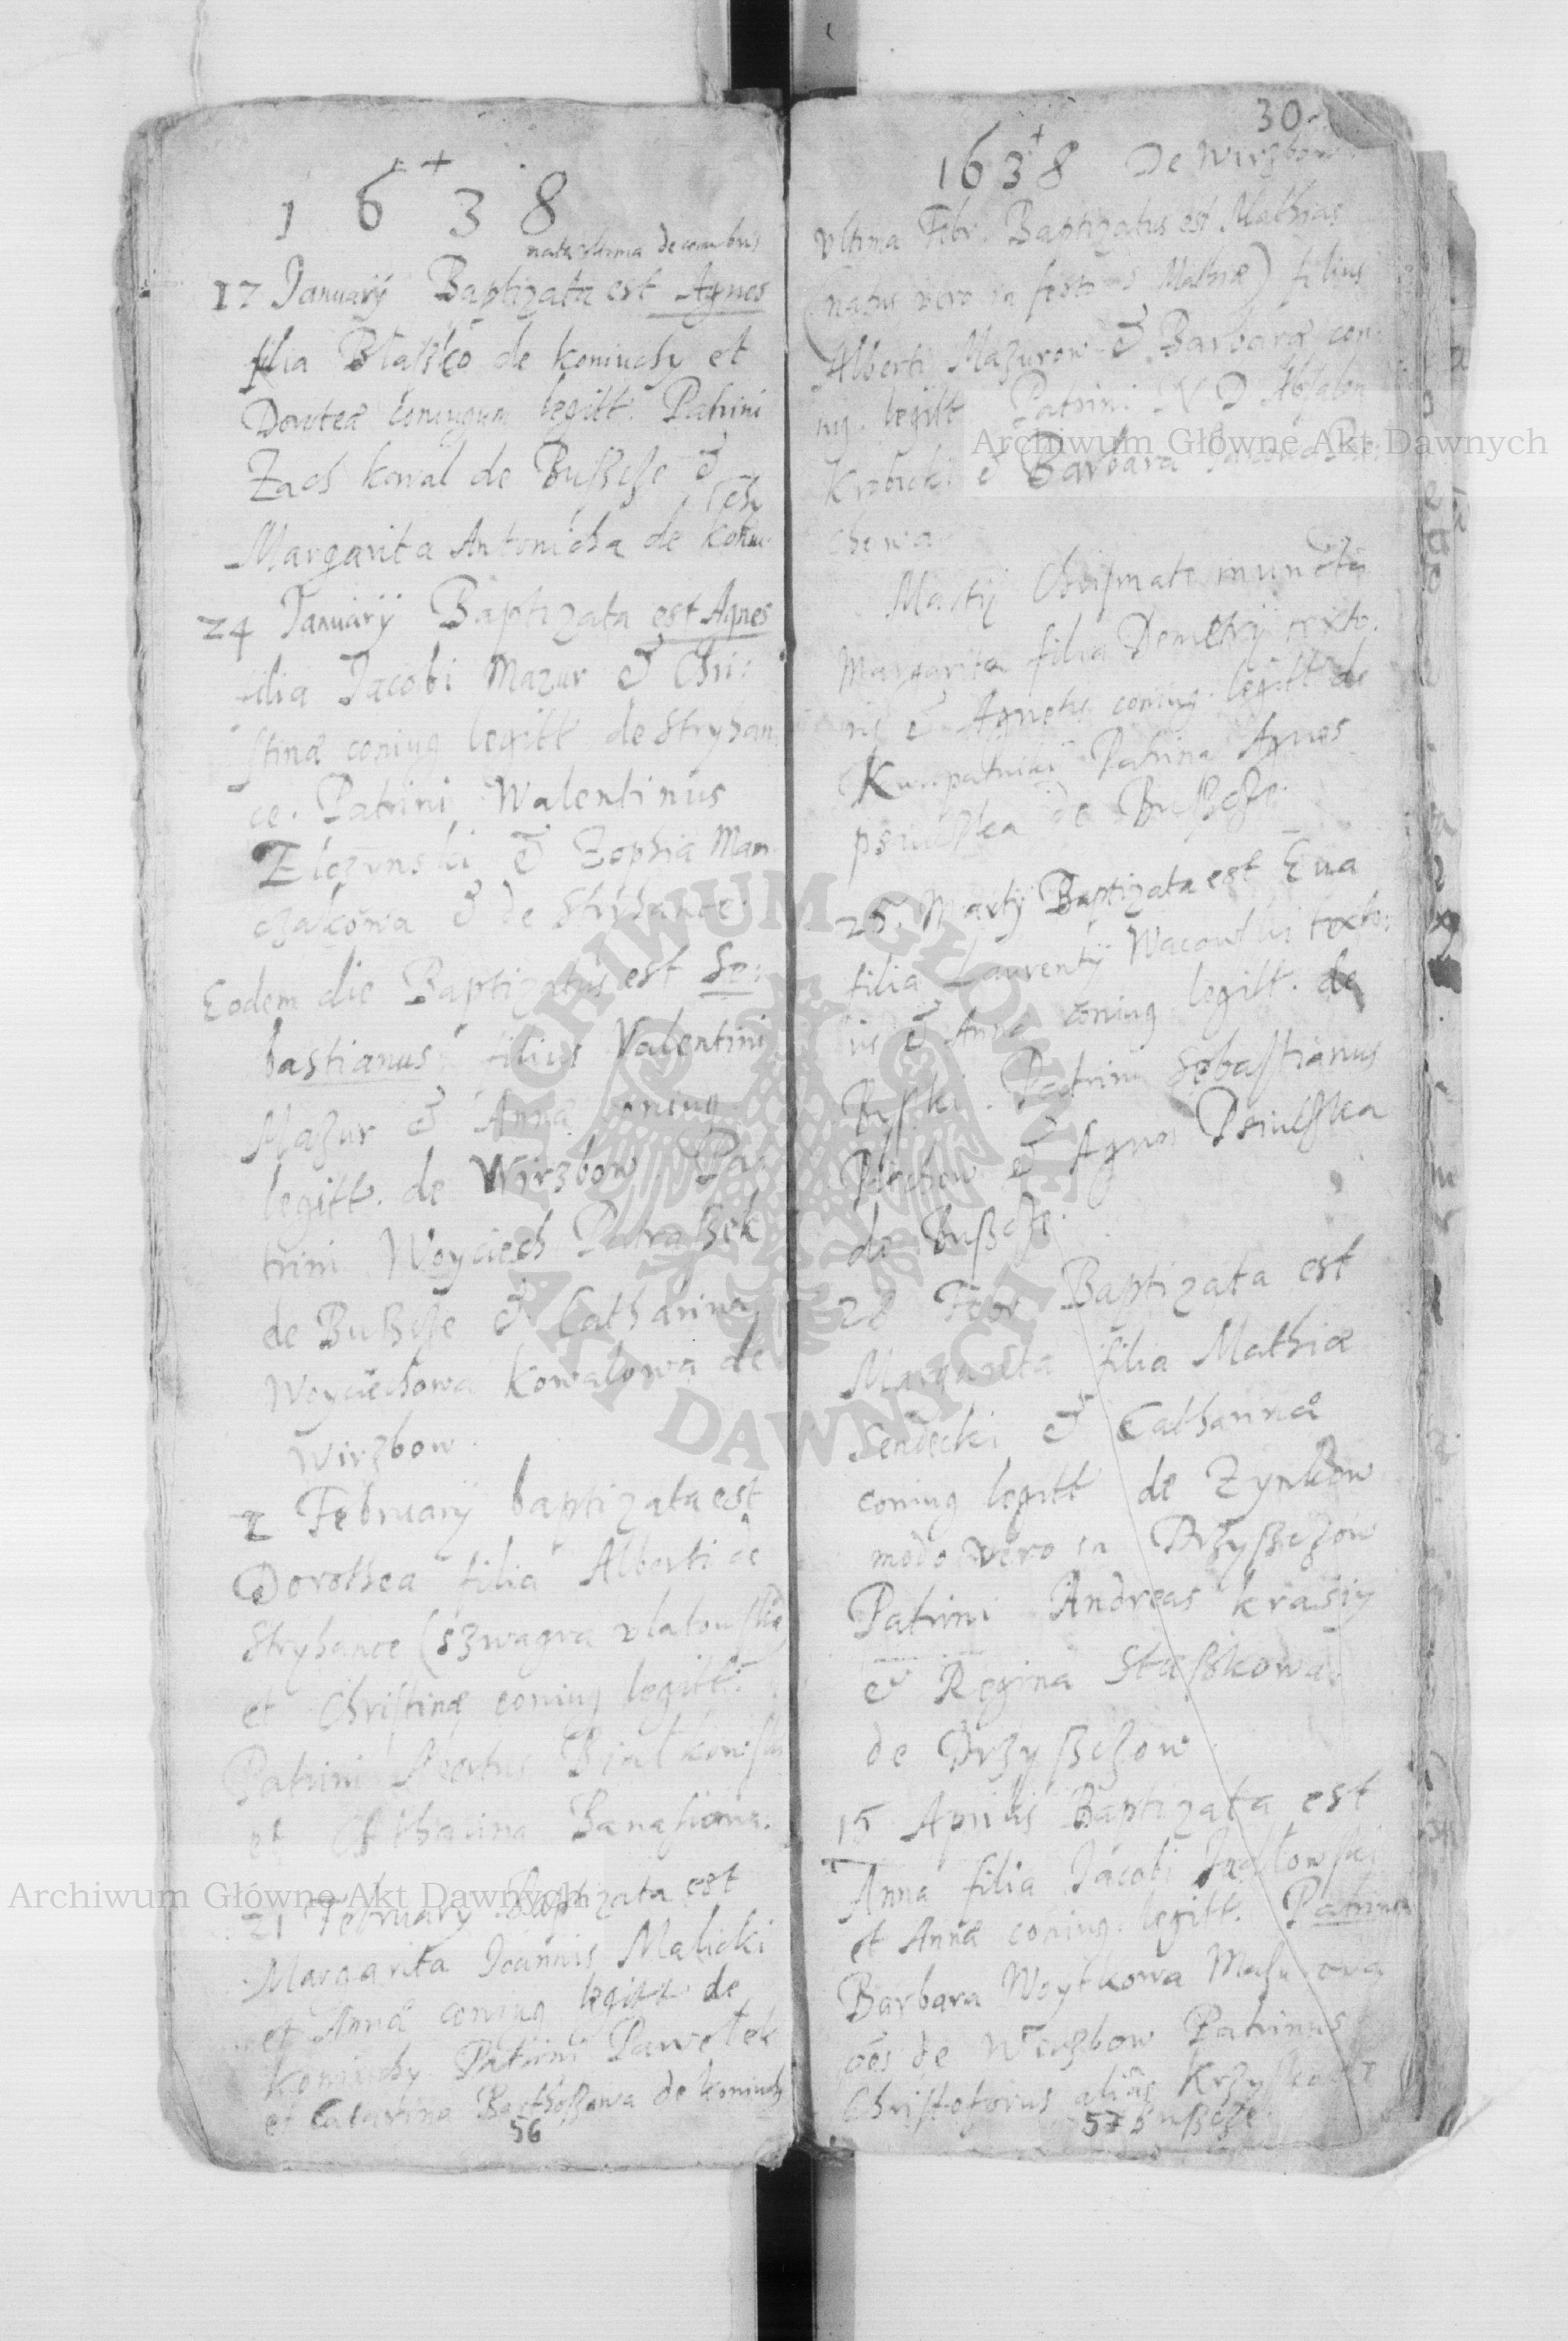 1 6 3 8
nata prima decembris
17 Januarij Baptizata est Agnes
filia Blaszko de koniuchy et
Doroteæ coniugum legitt. Patrini
Zach koval de Buszcze &
chy
Margarita Antonicha de koniu
24 Januarij Baptizata est Agnes
filia Jacobi Mazur & Chri:
stinæ coniug legitt de Stryhan
ce. Patrini Walentinus
& Zophia Man
czakowa & de Stryhance.
Eodem die Baptizatus est Se:
bastianus filius Valentini
Mazur & Annæ coniug
legitt. de Wirzbow Pa:
trini Woyciech Patraszek
de Buszcze & Catharina
Woyciechowa Kowalowa de
Wirzbow.
2 Februarij baptizata est
Dorothea filia Alberti de
Stryhance (szwagra
et Christinæ coniug legitt.
Patrini Bialkowski
et Catharina Banasiowa.
21 Februarij Baptizata est
Margarita Joannis Malicki
et Annæ coniug legitt de
koniuchy Patrini Pawelek
et Catarina Barthoszowa de koniuchy
56
30
1638 De Wirzbow
Vltima Febr. Baptizatus est Mathias
(natus vero in festo S Mathiæ) filius
Alberti Mazurow & Barbaræ con
iug. legitt Patrini N D Absalon
& Barbara
chowa
Martij Chrismate inuncta
Margarita filia Demetrij texto.
ris & Agnetis coniug. legitt de
Kuropatniki Patrina Agnes
psiulska de Buszcze.
25. Martij Baptizata est Eua
filia Laurentij Wacowski texto:
ris & Annæ coniug legitt. de
Buski. Patrini Sebastianus
& Agnes Psiulska
de Buszcze.
28 Febr Baptizata est
Margarita filia Mathiæ
Sendecki & Catharinæ
coniug legitt de Zynkow
modo vero in Przyszczow
Patrini Andreas krasiy
& Regina Staszkowa.
de Przyszczow.
15 Aprilis Baptizata est
Anna filia Jacobi
et Annæ coniug. legitt. Patrina
Barbara Woytkowa Masurowa
de Wirzbow Patrinus
Christoforus alias
57 Buszcze
Archiwum Główne Akt Dawnych
Archiwum Główne Akt Dawnych
ARCHIWUM GŁÓWNE
AKT DAWNYCH